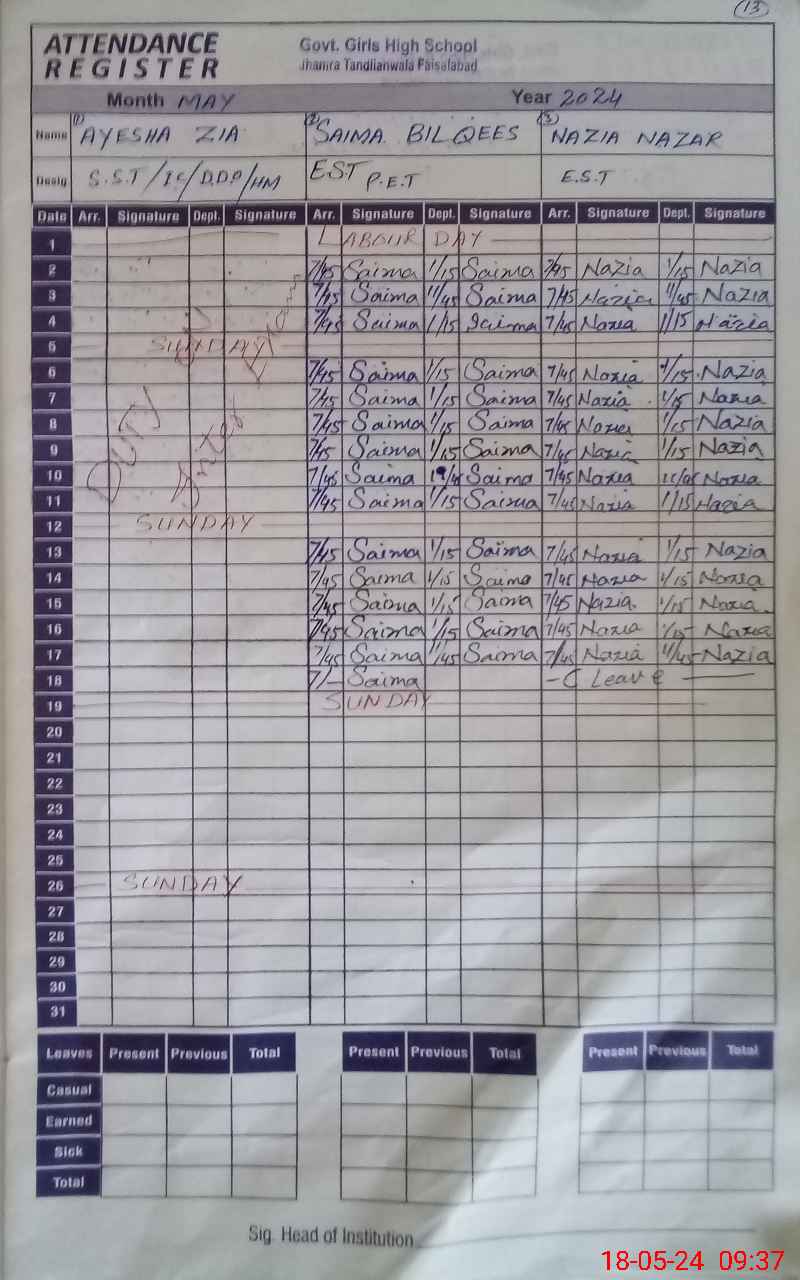 13
ATTENDANCE REGISTER
Govt. Girls High School
Jhamra Tandlianwala Faisalabad
Month MAY Year 2024
Name (1) AYESHA ZIA (2) SAIMA BILQEES (3) NAZIA NAZAR
Desig S.S.T/IC/D.D.O/HM EST P.E.T E.S.T
Date Arr. Signature Dept. Signature Arr. Signature Dept. Signature Arr. Signature Dept. Signature
1 LABOUR DAY
2 7/45 Saima 1/15 Saima 7/45 Nazia 1/15 Nazia
3 7/45 Saima 11/45 Saima 7/45 Nazia 11/45 Nazia
4 7/45 Saima 1/15 Saima 7/45 Nazia 1/15 Nazia
5 SUNDAY
6 7/45 Saima 1/15 Saima 7/45 Nazia 1/15 Nazia
7 7/45 Saima 1/15 Saima 7/45 Nazia 1/15 Nazia
8 7/45 Saima 1/15 Saima 7/45 Nazia 1/15 Nazia
DUTY Inter Exam
9 7/45 Saima 1/15 Saima 7/45 Nazia 1/15 Nazia
10 7/45 Saima Saima 7/45 Nazia Nazia
11 7/45 Saima 1/15 Saima 7/45 Nazia 1/15 Nazia
12 SUNDAY
13 7/45 Saima 1/15 Saima 7/45 Nazia 1/15 Nazia
14 7/45 Saima 1/15 Saima 7/45 Nazia 1/15 Nazia
15 7/45 Saima 1/15 Saima 7/45 Nazia 1/15 Nazia
16 7/45 Saima 1/15 Saima 7/45 Nazia 1/15 Nazia
17 7/45 Saima 11/45 Saima 7/45 Nazia 11/45 Nazia
18 7/- Saima - C Leave
19 SUNDAY
20
21
22
23
24
25
26 SUNDAY
27
28
29
30
31
Leaves Present Previous Total Present Previous Total Present Previous Total
Casual
Earned
Sick
Total
Sig. Head of Institution
18-05-24 09:37